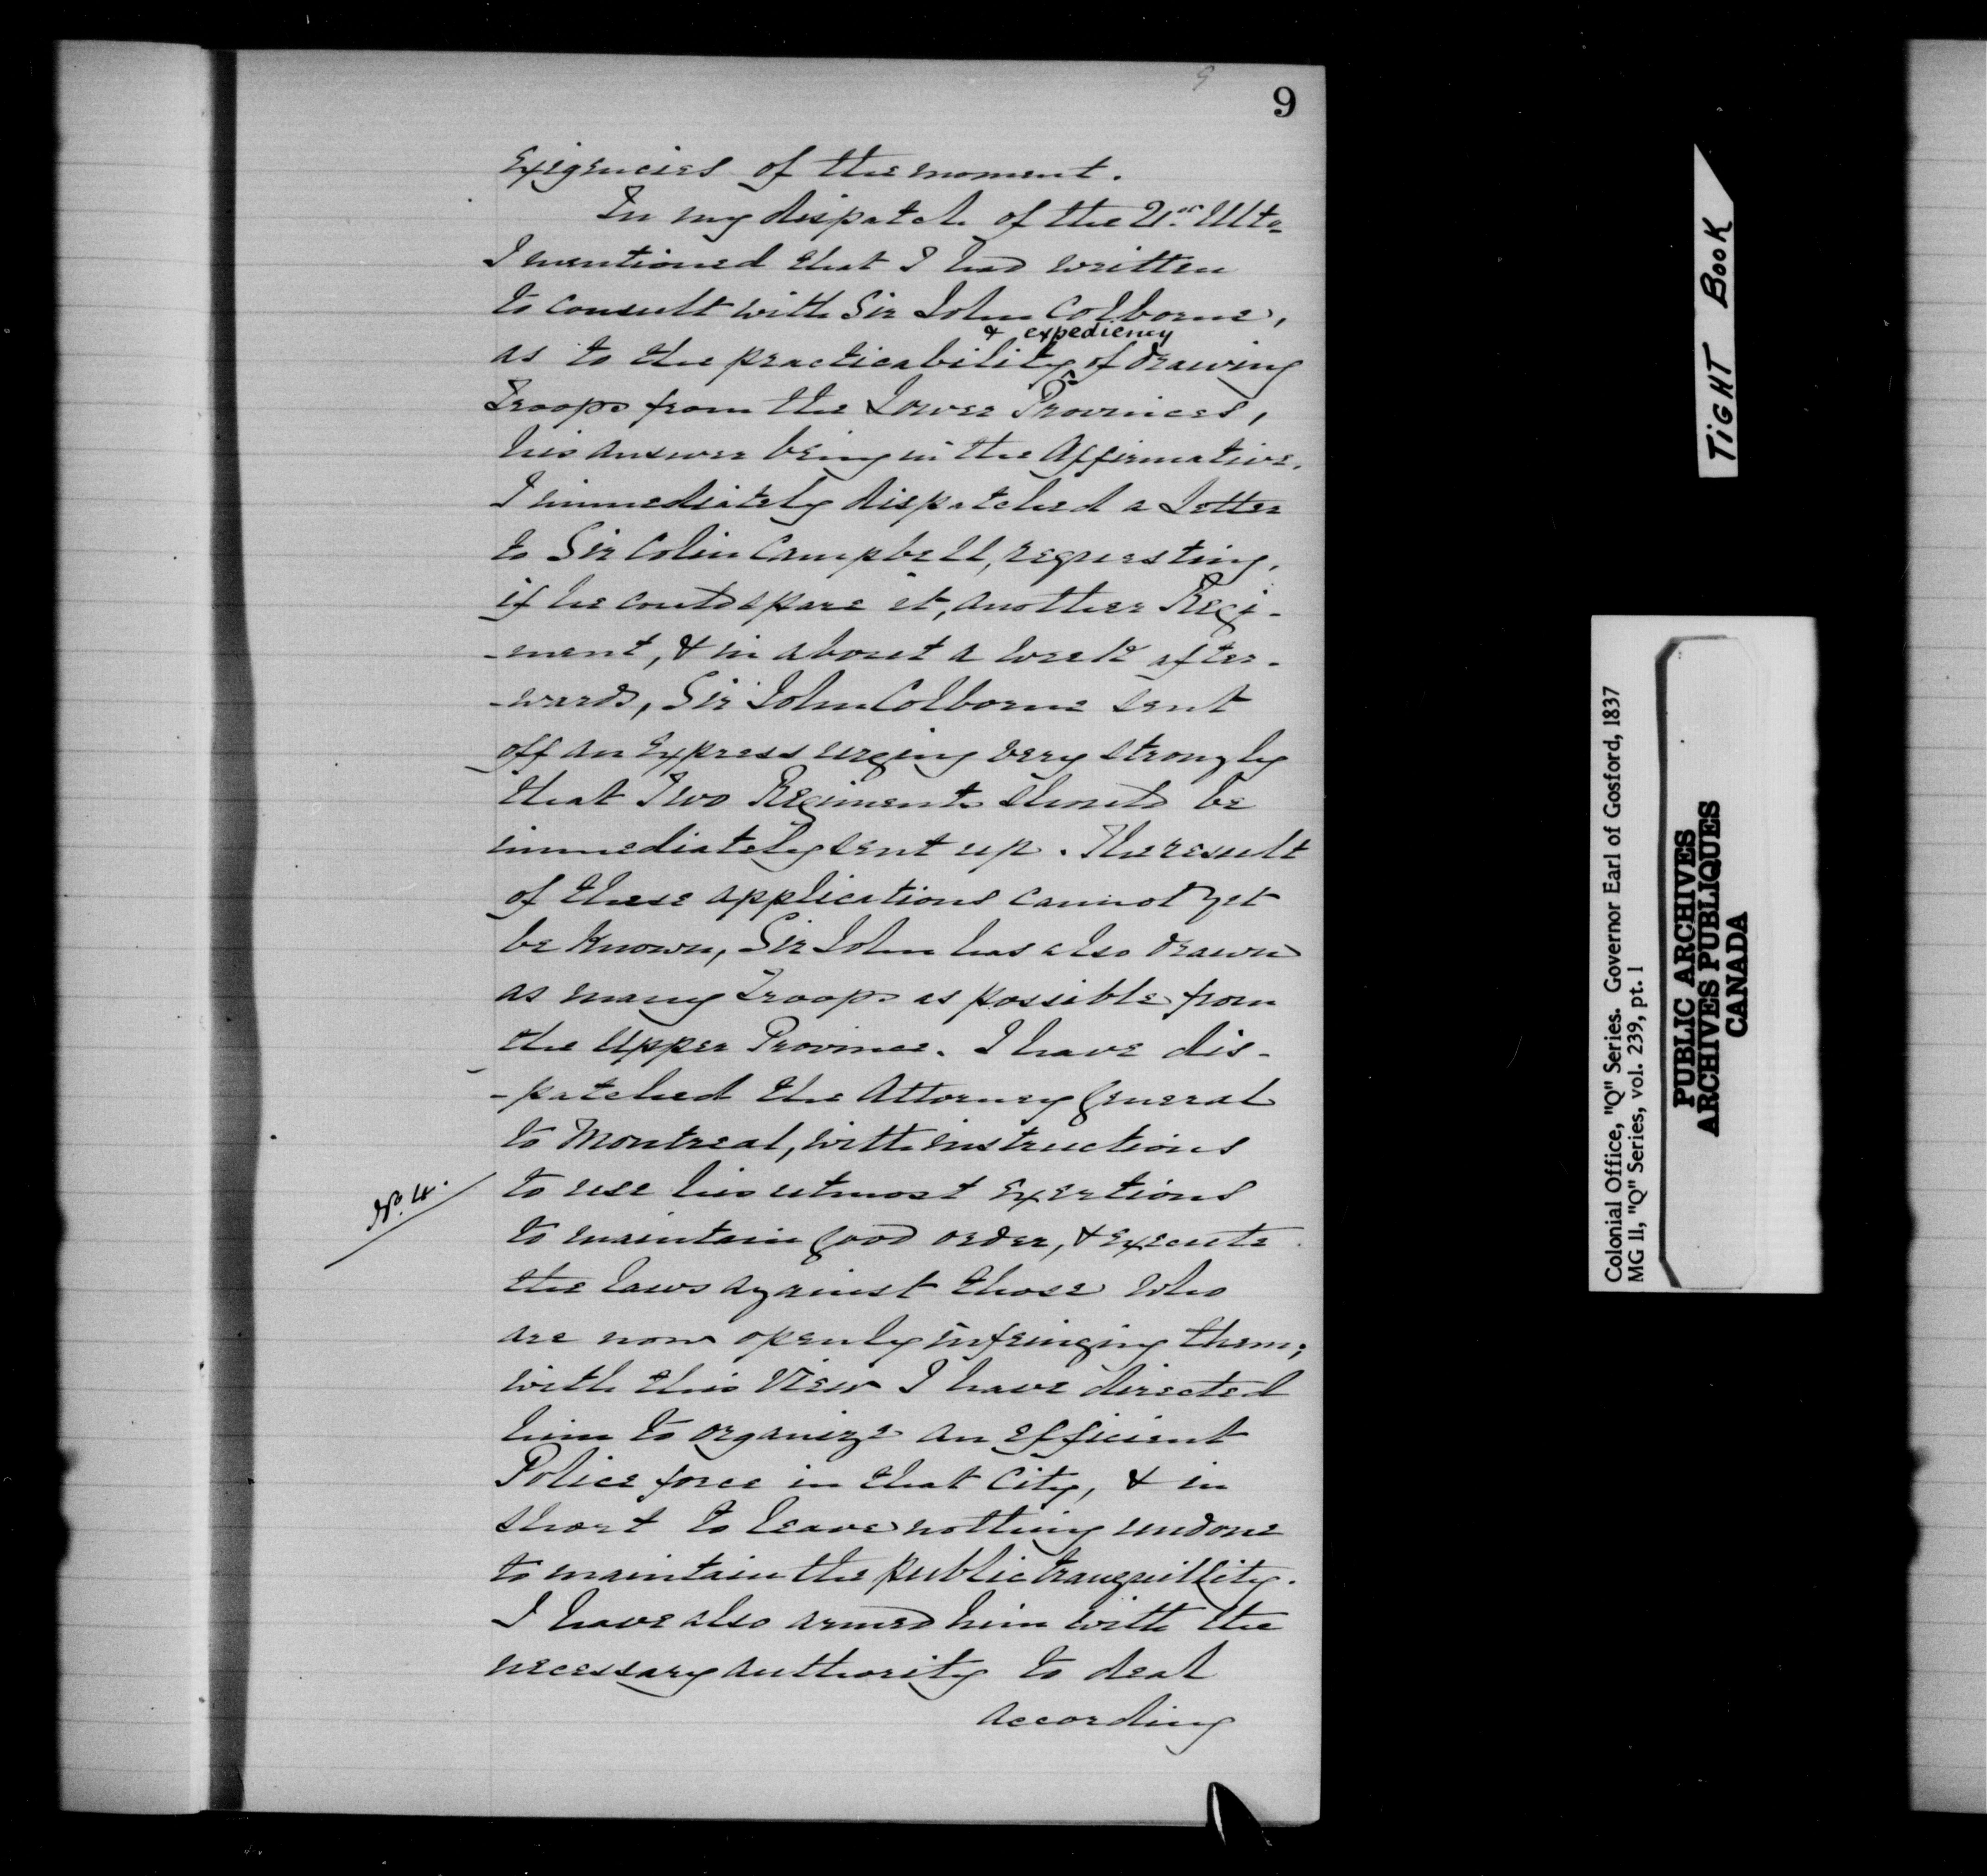 9
9
Exigencies of the moment.
In my dispatch of the 21st. Ulto
I mentioned that I had written
to consult with Sir John Colborne,
& expediency
as to the practicability ^ of drawing
Troops from the Lower Provinces,
his answer being in the Affirmative.
I immediately dispatched a Letter
to Sir Colin Campbell, requesting,
if he could spare it, another Regi-
-ment, & in about a week after-
-wards, Sir John Colborne sent
off an Express urging very strongly
that Two Regiments should be
immediately sent up. The result
of these applications cannot yet
be known, Sir John has also drawn
as many Troops as possible from
the Upper Province. I have dis-
-patched the Attorney General
to Montreal, with instructions
No. 4.
to use his utmost Exertions
to maintain good order, & Execute
the laws against those who
are now openly infringing them;
with this View I have directed
him to organize an Efficient
Police force in that City, & in
short to leave nothing undone
to maintain the public tranquillity.
I have also armed him with the
necessary authority to deal
according
TIGHT BOOK
Colonial Office, "Q" Series. Governor Earl of Gosford, 1837
MG 11, "Q" Series, vol. 239, pt. 1
PUBLIC ARCHIVES
ARCHIVES PUBLIQUES
CANADA